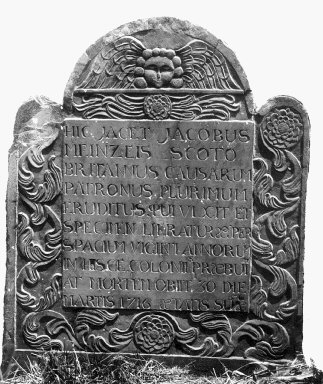 HIC JACET JACOBUS
MEINZEIS SCOTO
BRITANNUS CAUSARUM
PATRONUS, PLURIMUM
ERUDITUS, QUI VIXIT ET
SPECIMEN LITERATURÆ PER
SPACIUM VIGINTI ANNORU
IN HISCE COLONI PRÆBUI
AT MORTEM OBIIT 30 DIE
MARTIS 1716 ÆTATIS SUÆ